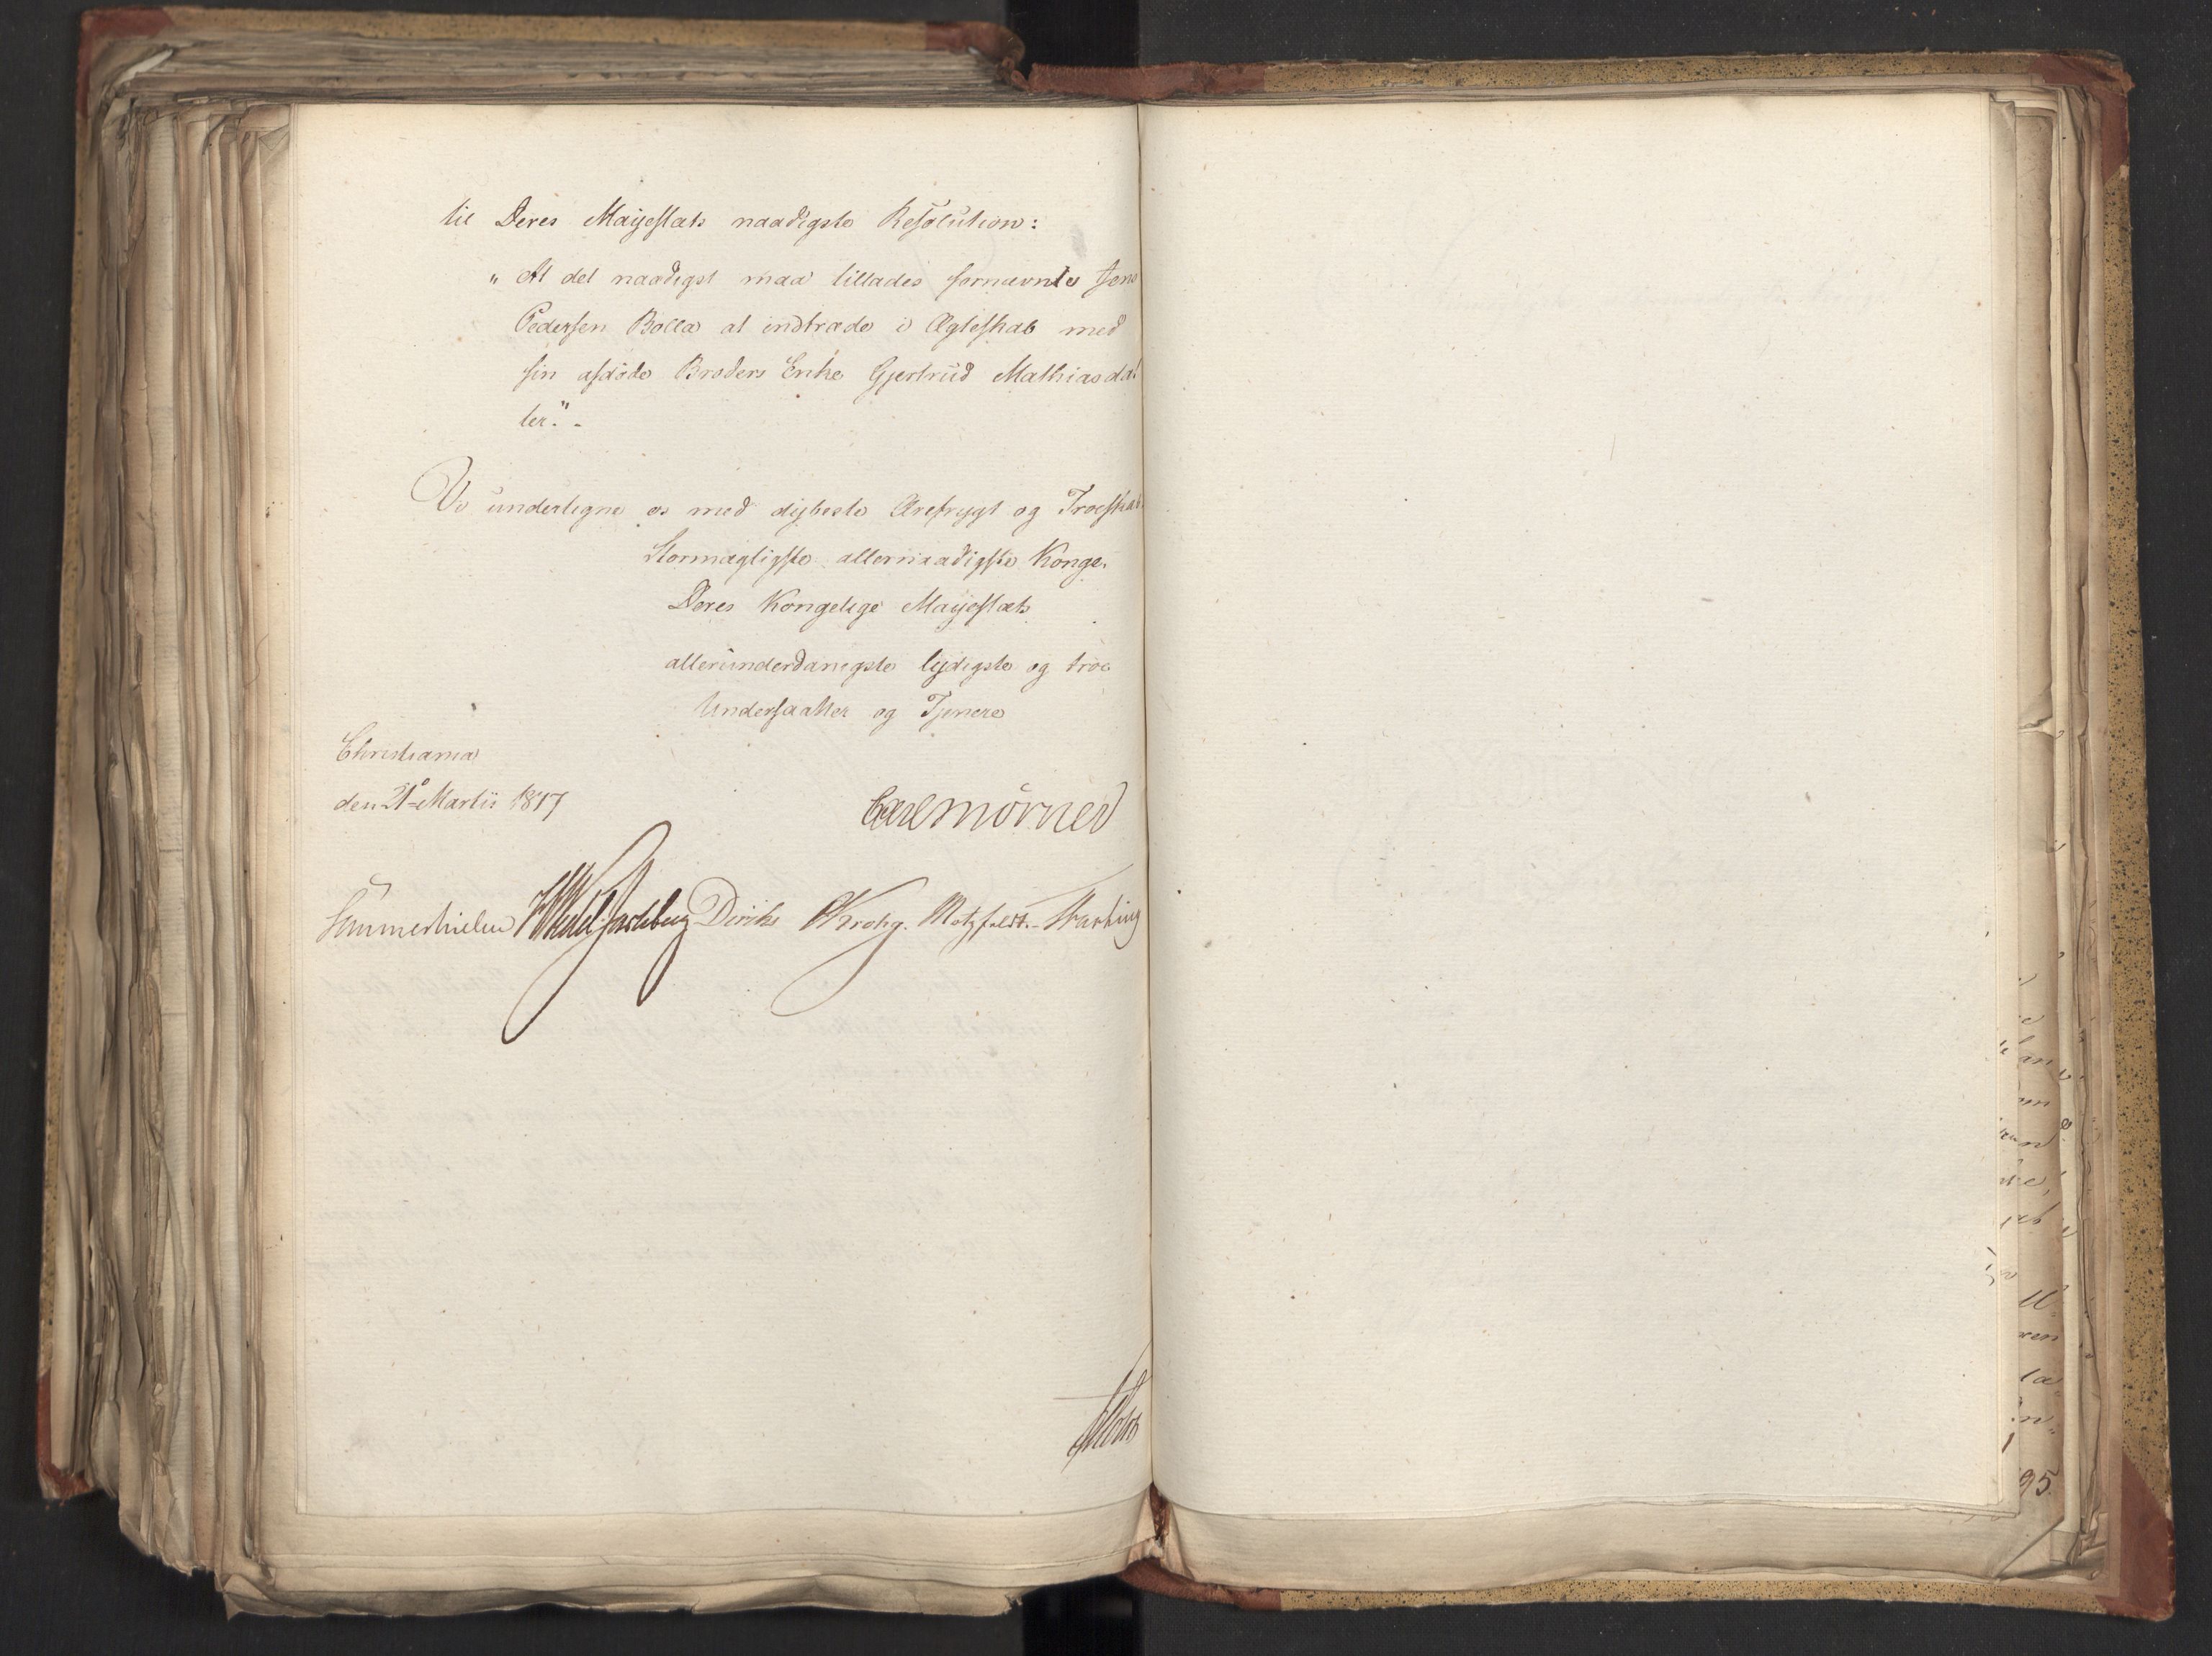 til Deres Majestæts naadigste Resolution:
„At det naadigst maa tillades fornævnte Jens
Pedersen Bolla at indtræde i Ægteskab med
sin afdøde Broders Enke Gjertrud Mathiasdat
ter." -
Vi undertegne os med dybeste Ærefrygt og Troeskab
Stormægtigste allernaadigste Konge.
Deres Kongelige Majestæts
allerunderdanigste lydigste og troe
Undersaatter og Tjenere
Christiania
den 21de Martii 1817
Carl Mörner
Sommerhielm HWedel Jarlsberg Diriks CKrohg. Motzfeldt. - Stachius
95.